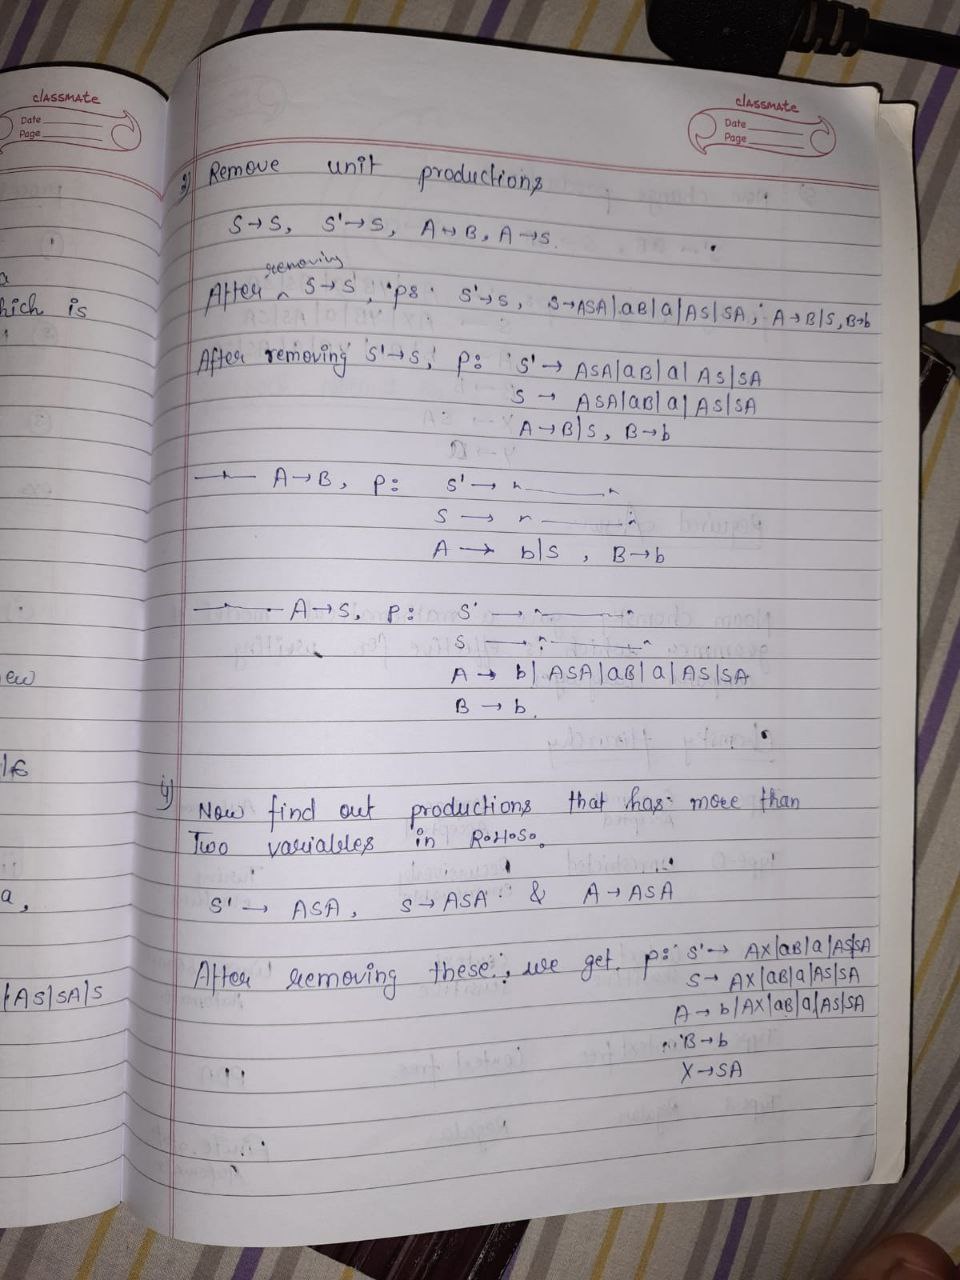 classmate
Date
Page
hich is
ew
a,
|AS|SA|S
classmate
Date
Page
3) Remove unit productions
S→S, S'→S, A→B, A→S.
removing
After ^ S→S, ps: S'→S, S→ASA|aB|a|AS|SA; A→B|S, B→b
After removing S'→S, p: S'→ ASA|aB|a|AS|SA
S → ASA|aB|a|AS|SA
A→B|S, B→b
A→B, p: S' → " ——— "
S → " ——— "
A → b|S , B→b
A→S, p: S' → " ——— "
S → " ——— "
A → b|ASA|aB|a|AS|SA
B → b.
4) Now find out productions that has more than
Two variables in R.H.S.
S' → ASA, S→ASA & A→ASA
After removing these, we get, p: S'→ AX|aB|a|AS|SA
S→ AX|aB|a|AS|SA
A→ b|AX|aB|a|AS|SA
B→b
X→SA